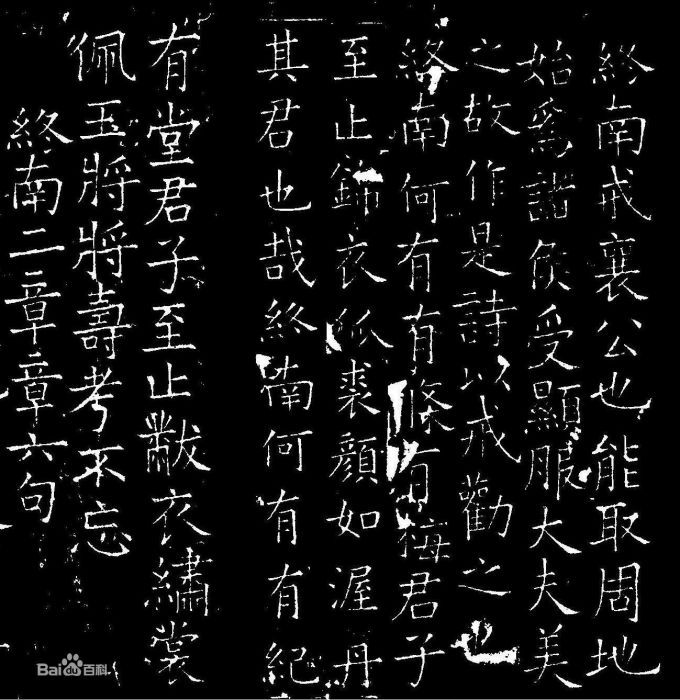 終南戒襄公也能取周地
始為諸侯受顯服大夫美
之故作是詩以戒勸之也
終南何有有條有梅君子
至止錦衣狐裘顏如渥丹
其君也哉終南何有有紀
有堂君子至止黻衣繡裳
佩玉將將壽考不忘
終南二章章六句
Bai百科